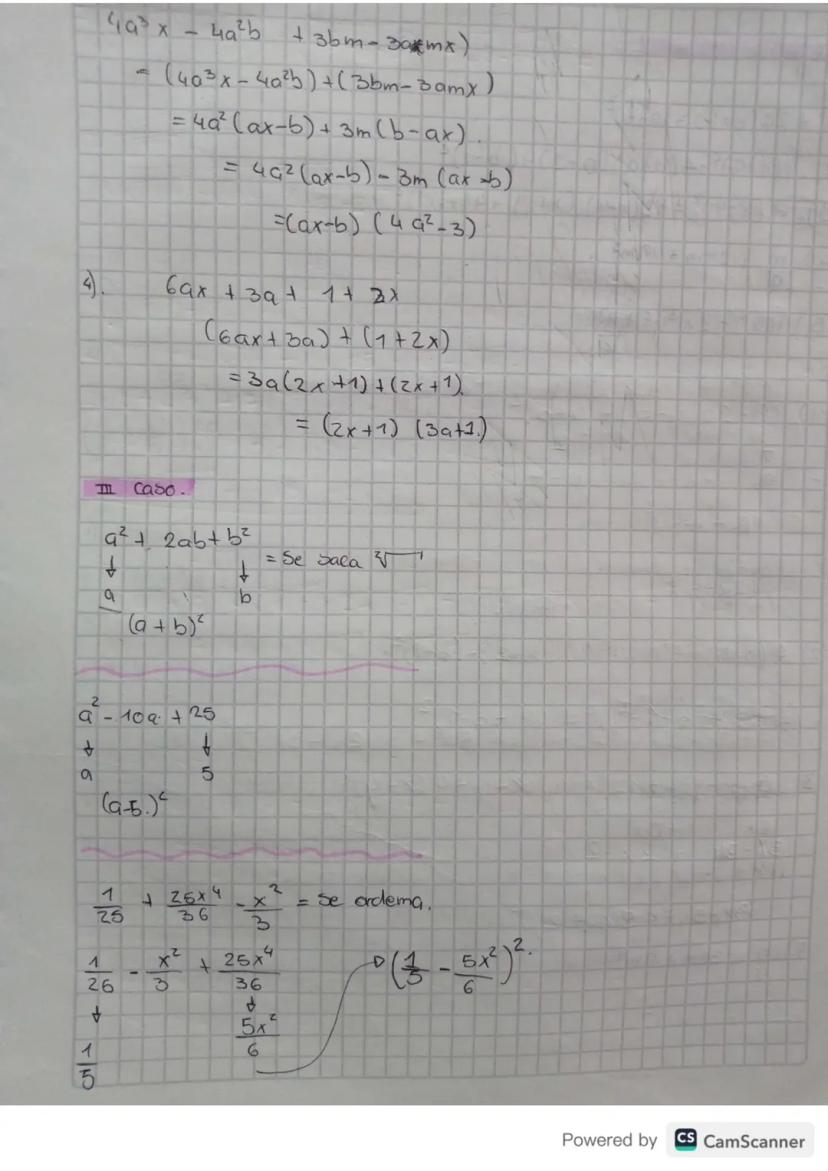 4a³x - 4a²b + 3bm - 3amx)
= (4a³x - 4a²b) + (3bm - 3amx)
= 4a² (ax-b) + 3m (b-ax).
= 4a² (ax-b) - 3m (ax-b)
=(ax-b) (4a²-3)
4). 6ax + 3a + 1 + 2x
(6ax+3a) + (1+2x)
= 3a(2x+1) + (2x+1).
= (2x+1) (3a+1.)
III caso.
a² + 2ab + b²
↓ ↓ = Se saca ²√
a b
(a + b)²
a² - 10a + 25
↓ ↓
a 5
(a-5.)²
1/25 + 25x⁴/36 - x²/3 = se ordema.
1/26 - x²/3 + 25x⁴/36 → (1/5 - 5x²/6)².
↓ ↓
1/5 5x²/6
Powered by CS CamScanner